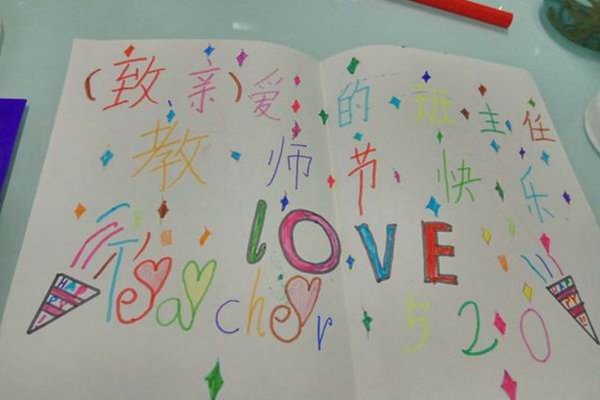 （致亲）爱的班主任
教师节快乐
lOVE
Teacher 520
HAPPY